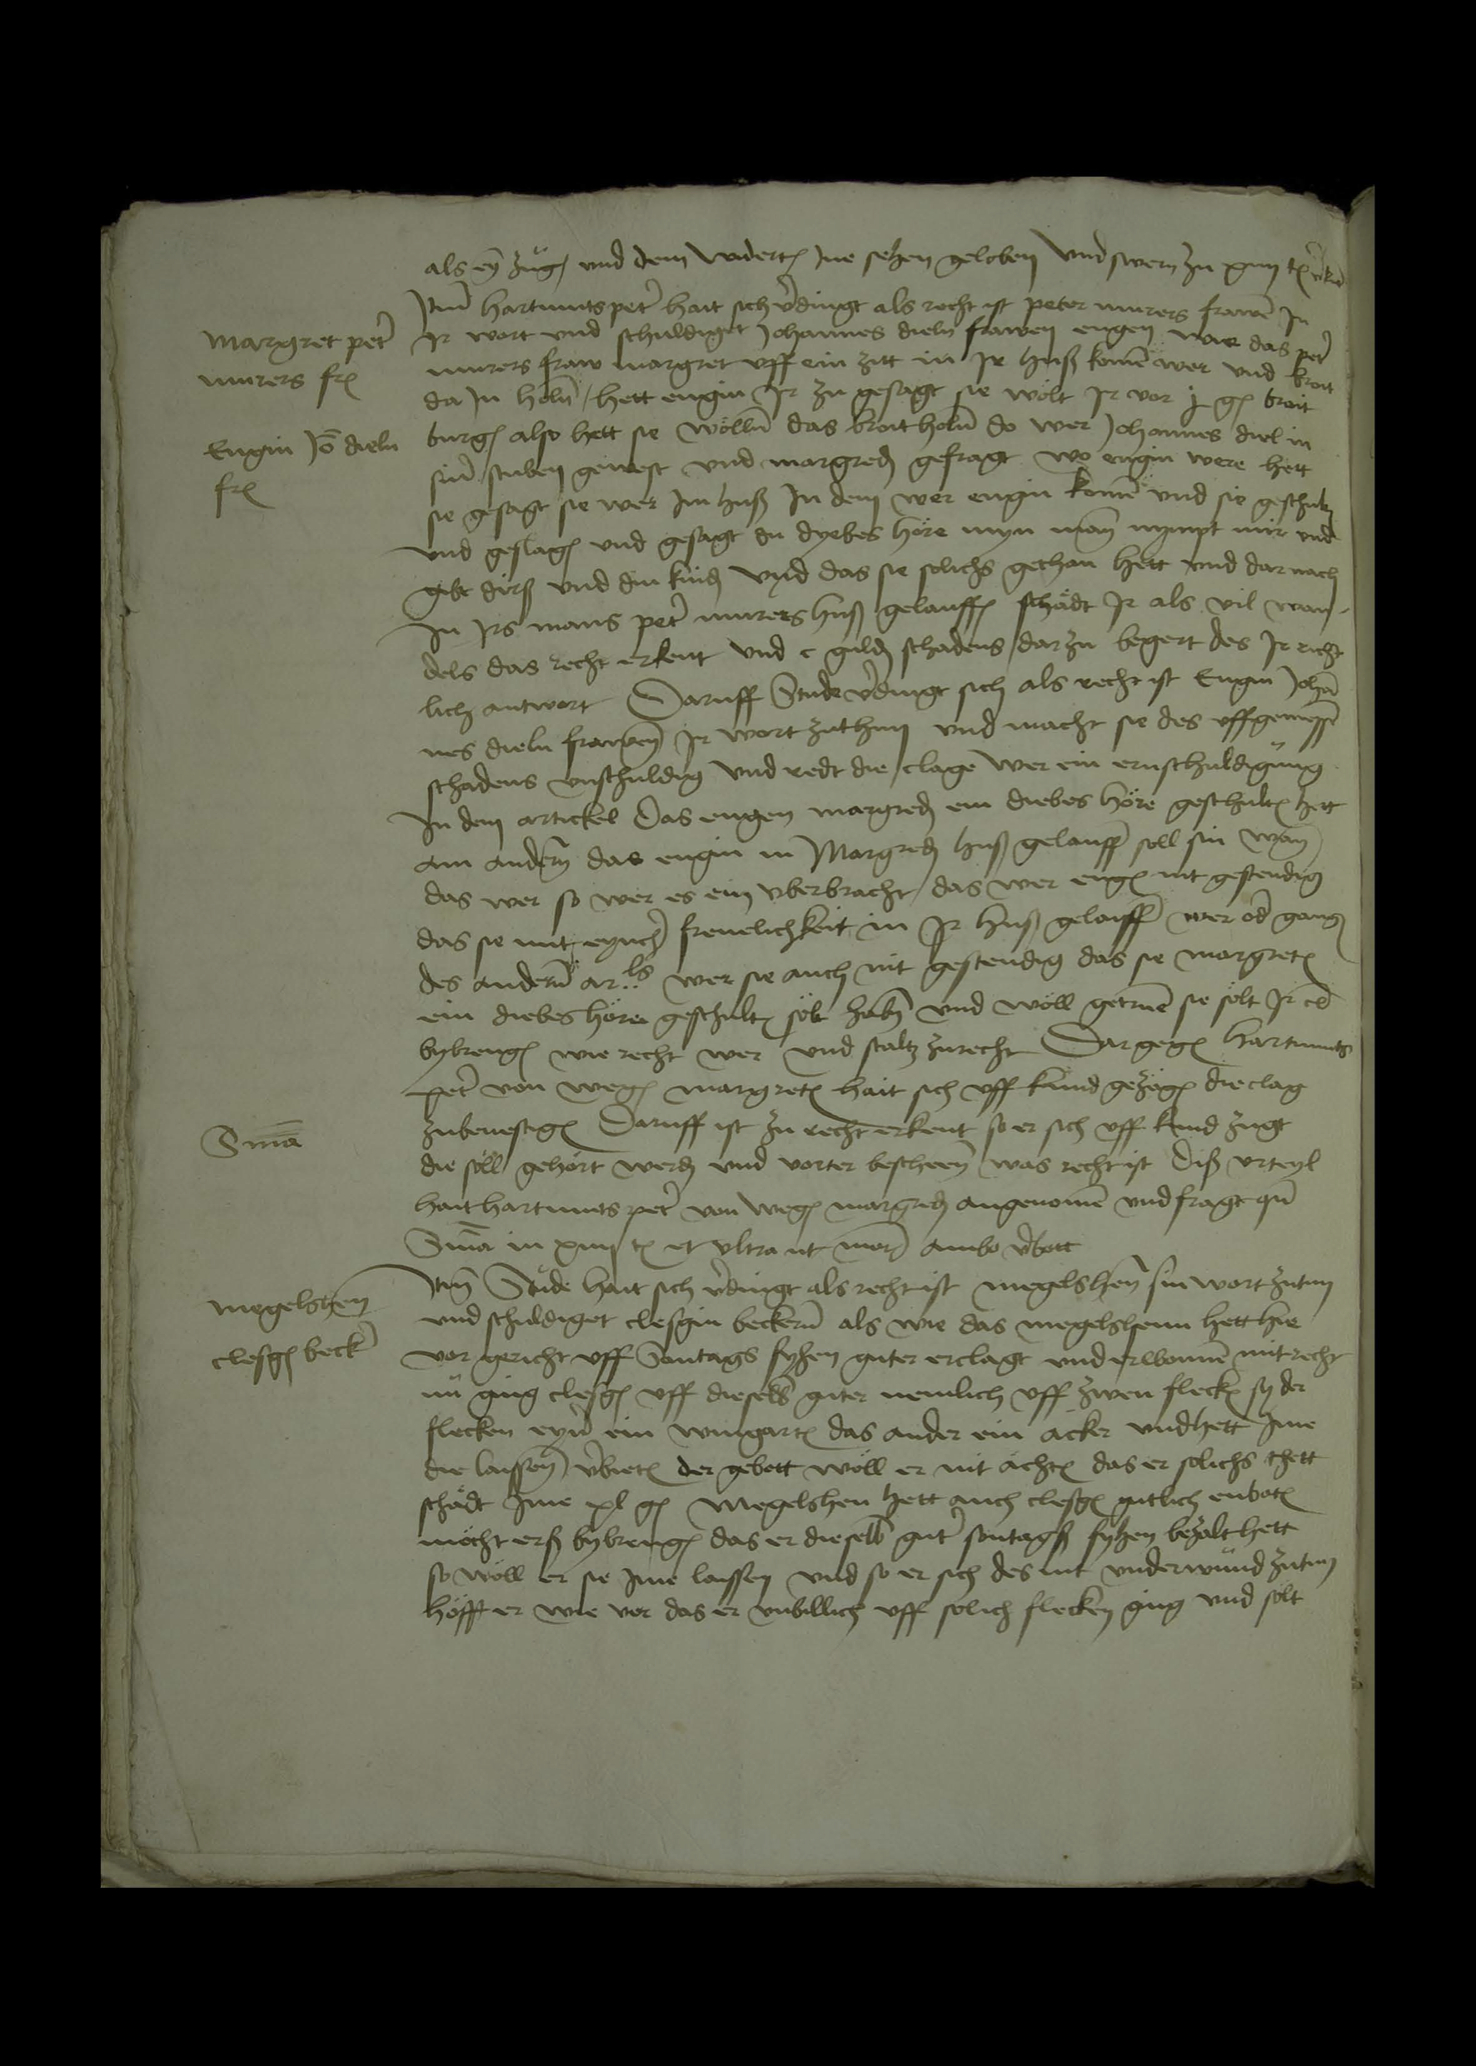 als eyn zug und dem widerteil ine sehen geloben und swern zu xiiij t
Margret peter
murers fr
Engin Jo dieln
fr
Item hartmuts peter hait sich verdingt als recht ist peter murers frawen In
Ir wort und schuldiget Johannes dieln frawen engen wie das peter
murers fraw margret uff ein zitt in Ir huß komen wer und broit
da In holn hett engin Ir zu gesagt sie wolt Ir vor broit
burgen also hett sie wolln das broit holn do wer Johannes diel in
siner stuben gewest und margreden gefragt wo engin were hett
sie gesagt sie wer Im huß In dem wer engin komen und sie geschulten
und geslagen und gesagt du dyebes hore myn man nympt mir und
gibt dirß und din kinden und das sie solichs gethan hett und darnach
In Irs mans peter murers huß gelauffen schadt Ir als vil wan-
dels das recht erkent und c gulden schadens darzu begert des Ir richt
lich antwort Daruff Stude verdingt sich als recht ist Engin Johan
nes dieln frauwen Ir wort zuthun und macht sie des uffgemessen
schadens unschuldig und redt die clage wer ein ernschuldigung
In dem artickel das engen margreden ein diebes hore geschulten hett
am andern das engin in Margreden huß gelauffen soll sin wan
das wer so wer es ein uberbracht das wer engen nit gestendig
das sie mit eyncher frevelichkeit in Ir huß gelauffen wer oder gangen
des andern ar..ls wer sie auch nit gestendig das sie margreten
ein diebes hore geschulten solt haben und woll getruen sie solt Ir
bybrengen wie recht wer und staltz zurecht Dargegen hartmuts
peter von wegen margreten hait sich uff kund gezogen die clag
Sma
zubevestigen Daruff ist zu recht erkent so er sich uff kund zugt
die soll gehort werden und vorter bescheen was recht ist Diß urteyl
hait hartmuts peter von wegen margreden angenomen und fragt qn
Sma in xiiij t et ultra ut mor ambo verbott
Megelshen
clesgen becker
Item Stude hait sich verdingt als recht ist megelshen sin wort zutun
und schuldiget clesgin beckern als wie das megelshenn hett hie
vor gericht uff Sontags fyhen guter erclagt und erwonnen mit recht
nu ging clesgen uff dieselben guter nemlich uff zwen flecken sy der
flecken eyner ein wingarten das ander ein acker und hett Ime
die laissen verbieten der gebott woll er nit achten das er solichs thett
schadt Ime xl g Megelshen hett auch clesgen gutlich enboten
mocht erß bybrengen das er dieselben guter sontagß fyhen bezalt hett
so woll er sie Ime laissen und so er sich des nit underwund zutun
hofft er wie vor das er unbillich uff solich flecken ging und solt